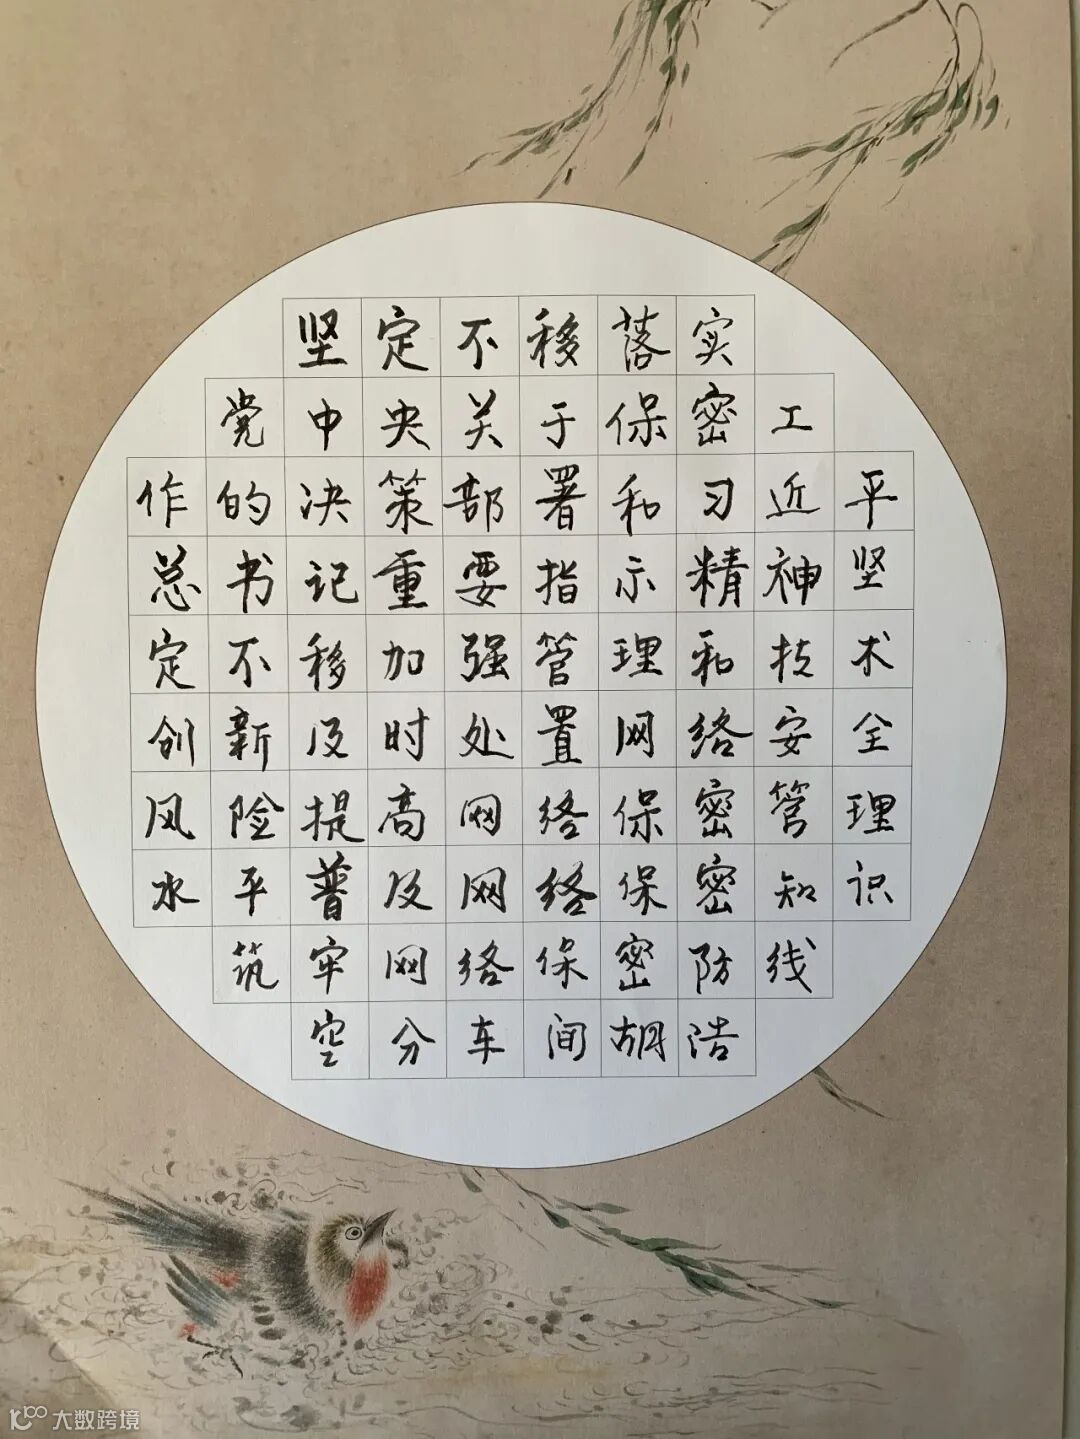 坚定不移落实
党中央关于保密工
作的决策部署和习近平
总书记重要指示精神坚
定不移加强管理和技术
创新及时处置网络安全
风险提高网络保密管理
水平普及网络保密知识
筑牢网络保密防线
空分车间胡浩
大数跨境